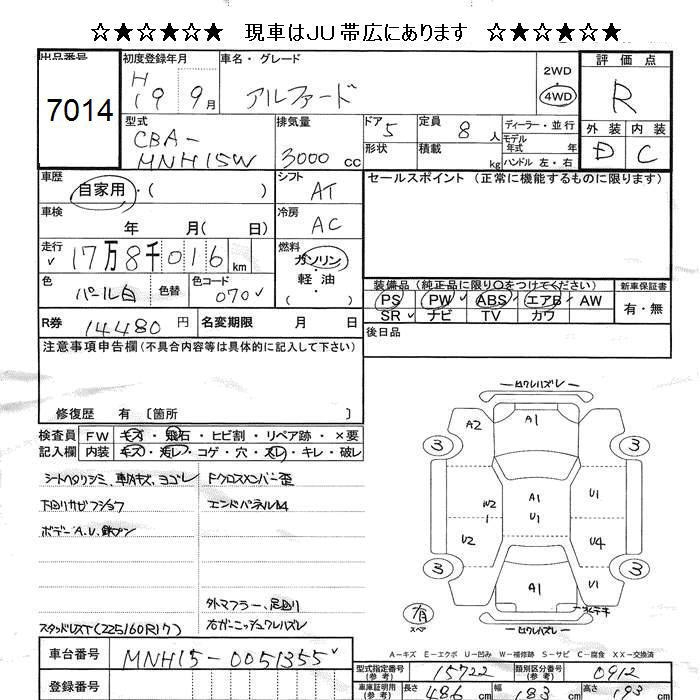 ☆★☆★☆★ 現車はJU帯広にあります ☆★☆★☆★
出品番号 初度登録年月 車名・グレード 2WD 評価点
7014 H 19 9月 アルファード 4WD R
型式 排気量 ドア 定員 ディーラー・並行 外装 内装
CBA-MNH15W 3000cc 5 8人 モデル年式 年 D C
形状 積載 kg ハンドル 左・右
車歴 シフト セールスポイント (正常に機能するものに限ります)
自家用・( ) AT
車検 年 月( 日) 冷房 AC
走行 17万8千016km 燃料 ガソリン・軽油 ( )
色 パール白 色替 色コード 070
装備品 (純正品に限り○をつけてください) 新車保証書
PS PW ABS エアB AW 有・無
SR ナビ TV カワ
R券 14480円 名変期限 月 日 後日品
注意事項申告欄 (不具合内容等は具体的に記入して下さい)
修復歴 有 〔箇所 〕
検査員 FW キズ・飛石・ヒビ割・リペア跡・×要
記入欄 内装 キズ・汚レ・コゲ・穴・スレ・キレ・破レ
シートヘタリシミ、車内キズ、ヨゴレ Fクロスメンバー歪
下回リサビフショク エンドパネルM
ボデーA.U、鉄プン
外マフラー、足回リ
スタッドレスT(225160R17) 右ガーニッシュワレハズレ
ワレハズレ
A2 A1
3 3
W2 A1 U1 U1
U2 U4
3 A1 U1 3
スペア ワレハズレ
A-キズ E-エクボ U-凹み W-補修跡 S-サビ C-腐食 XX-交換済
車台番号 MNH15-0051355
型式指定番号 (参考) 15722 類別区分番号 (参考) 0912
登録番号
車庫証明用 (参考) 長さ 486cm 幅 183cm 高さ 193cm